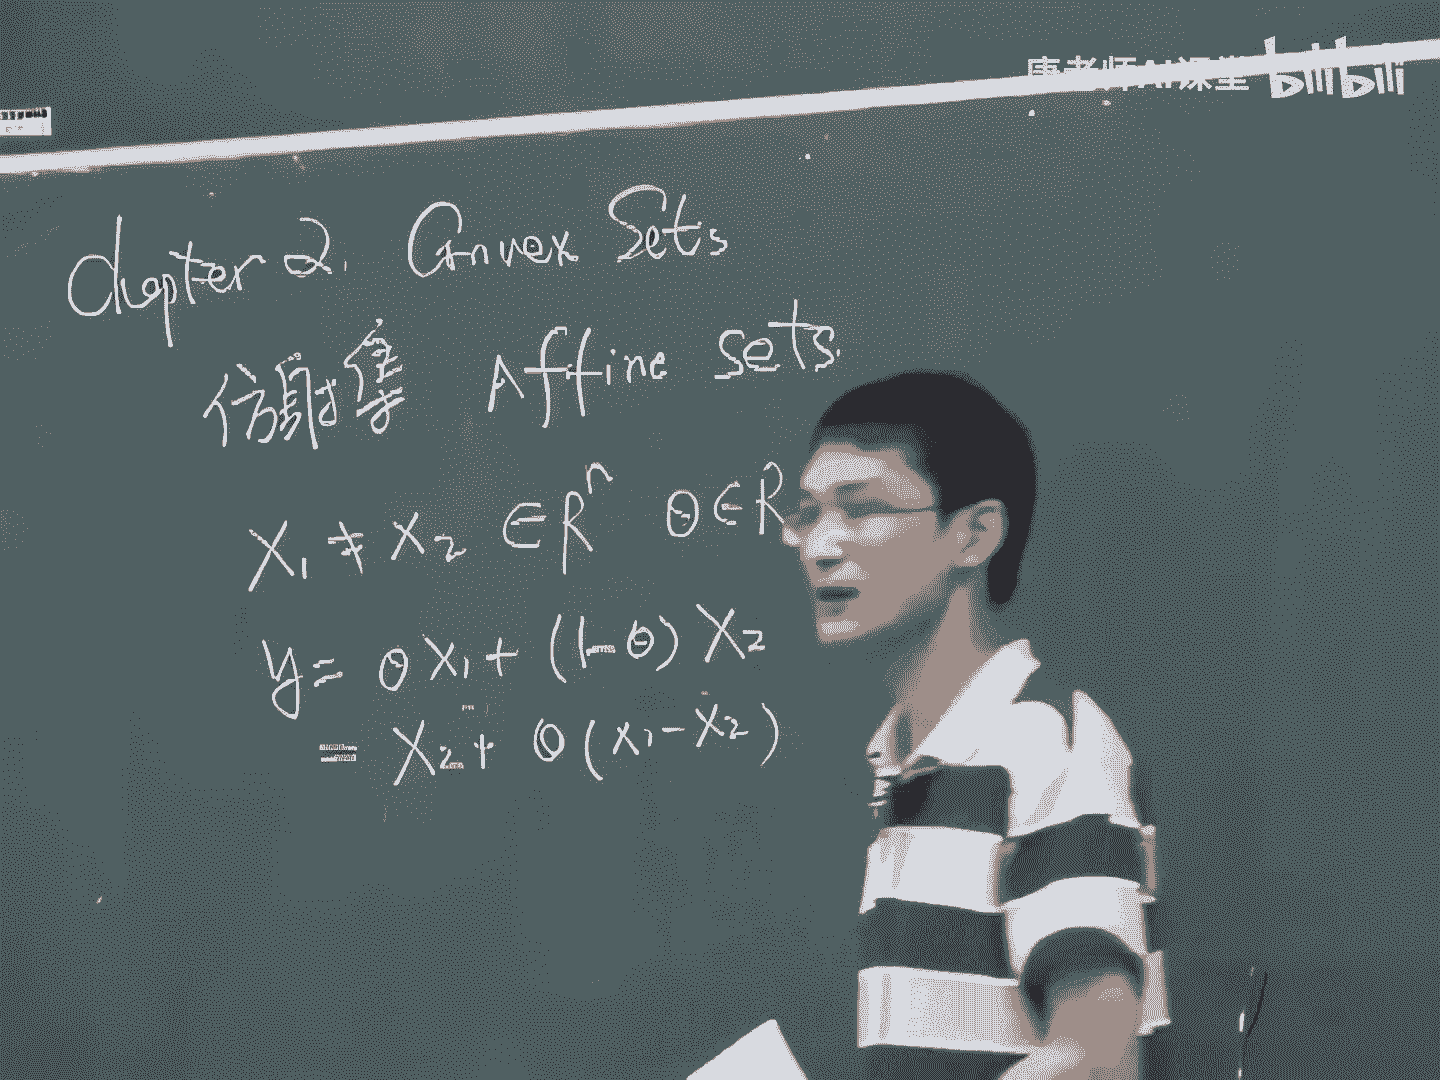 唐老师AI课堂 bilibili
Chapter 2. Convex Sets
仿射集 Affine sets.
X₁ ≠ X₂ ∈ Rⁿ θ ∈ R
y = θX₁ + (1-θ) X₂
= X₂ + θ(X₁-X₂)